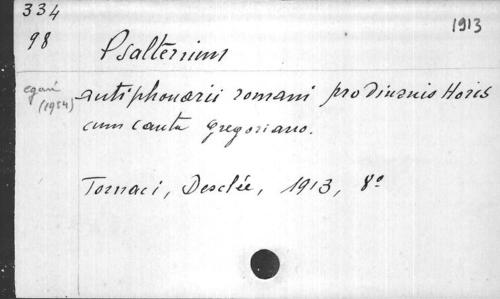 334
98
1913
Psalterium
egari (1954)
antiphonarii romani pro diurnis Horis
cum cantu gregoriano.
Tornaci, Desclée, 1913, 8º